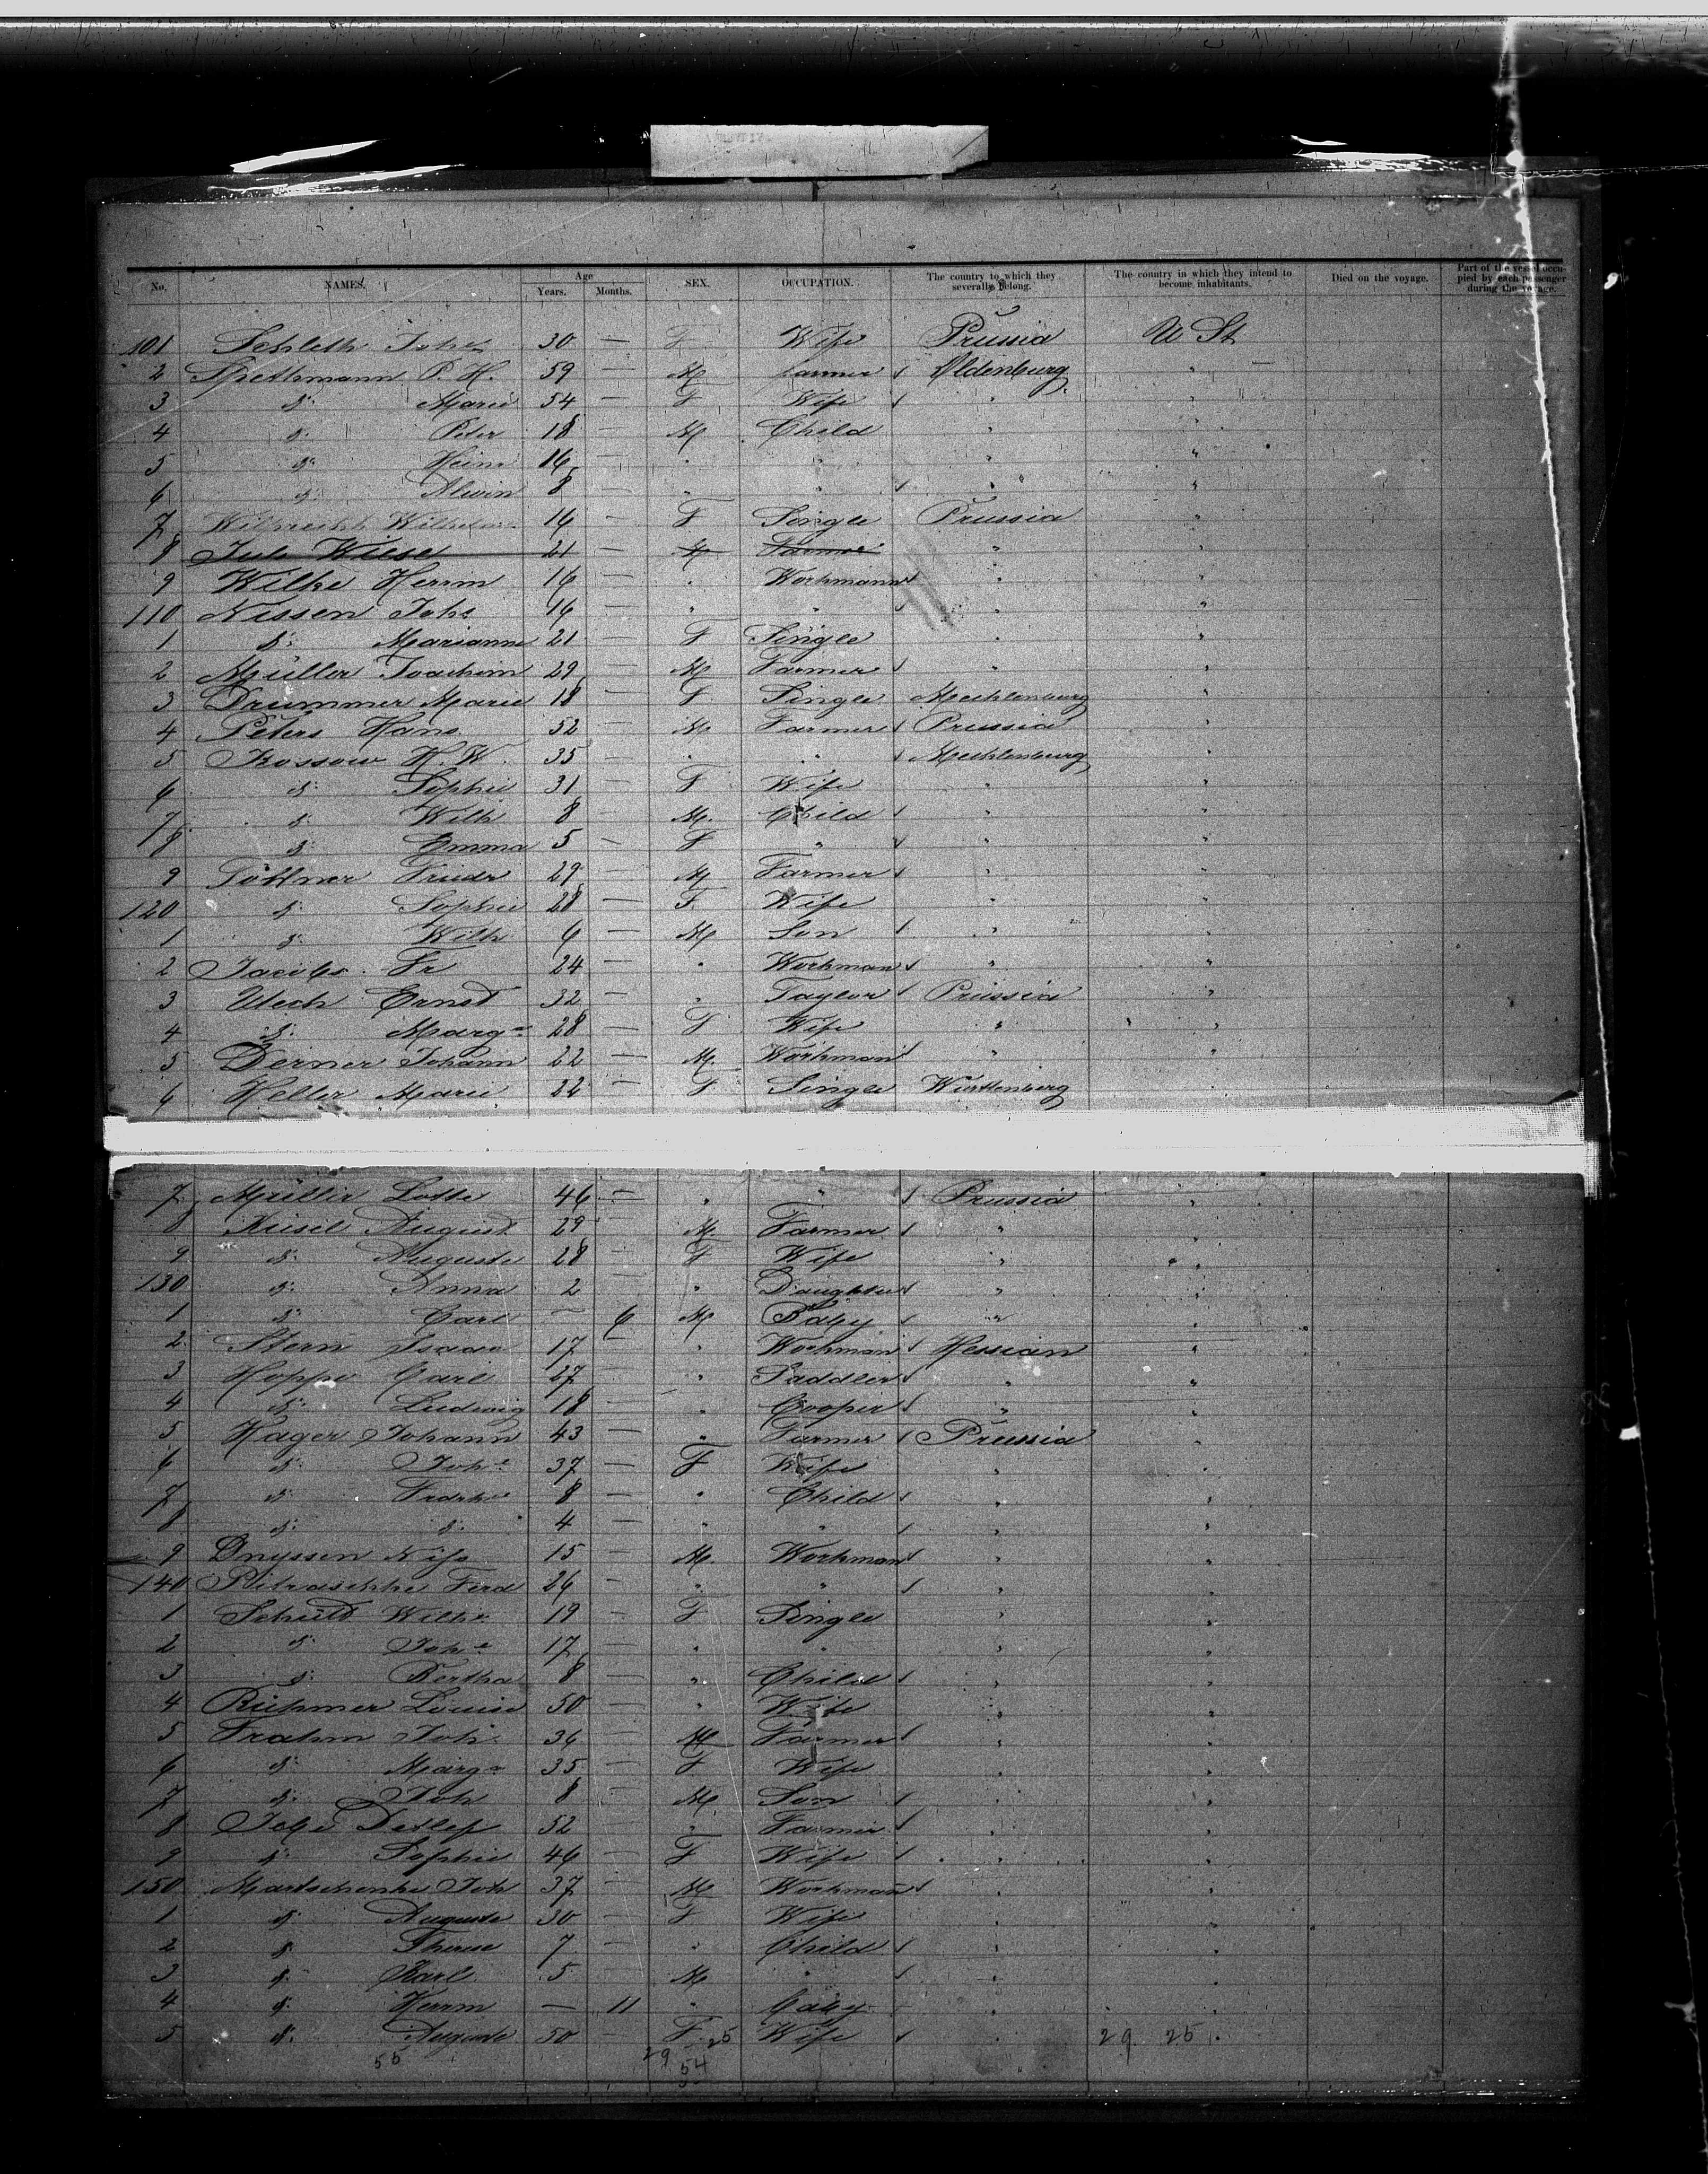 No. NAMES. Age Years. Months. SEX. OCCUPATION. The country to which they severally belong. The country in which they intend to become inhabitants. Died on the voyage. Part of the vessel occupied by each passenger during the voyage.
101 Schleth Johe 30 — F Wife Prussia U St
2 Spethmann P. H. 59 — M farmer Oldenburg "
3 d: Marie 54 — F Wife " "
4 d: Peter 18 — M Child " "
5 d: Heinr 16 — " " " "
6 d: Alwin 8 — " " " "
7 Wilhelm 16 — F Single Prussia "
8 Jul Wiese 21 — M Farmer " "
9 Wilke Herrm 16 — " Workmann " "
110 Nissen Johs 16 — " " " "
1 d: Marianne 21 — F Single " "
2 Müller Joachim 29 — M Farmer " "
3 Drummer Marie 18 — F Single Mecklenburg "
4 Peters Hans 52 — M Farmer Prussia "
5 Kossow H. W. 35 — " " Mecklenburg "
6 d: Sophie 31 — F Wife " "
7 d: Wilh 8 — M. Child " "
8 d: Emma 5 — F " " "
9 Friedr 29 — M Farmer " "
120 d: Sophie 28 — F. Wife " "
1 d: Wilh 6 — M Son " "
2 Jacobs Fr 24 — " Workman " "
3 Utech Ernst 32 — " Taylor Prussia "
4 d: Marga 28 — F Wife " "
5 Derner Johann 22 — M. Workman " "
6 Heller Marie 22 — F Single Württenberg
7 Müller Lotte 46 — " " Prussia "
8 Kusel August 29 — M Farmer " "
9 d: Auguste 28 — F Wife " "
130 d: Anna 2 " Daughter " "
1 d: Carl — 6 M Baby " "
2 Stern Isaac 17 — " Workman Hessian "
3 Hoppe Carl 27 — " Saddler " "
4 d: Ludwig 18 — " Cooper " "
5 Hager Johann 43 — " Farmer Prussia "
6 d: Johe 37 — F Wife " "
7 d: 8 — " Child " "
8 d: d: 4 — " " " "
9 Nifs 15 — M. Workman " "
140 Ferd 26 — " " " "
1 Schuld Wilhe 19 — F Single " "
2 d: Johe 17 — " " " "
3 d: Bertha 8 — " Child " "
4 Louise 50 — " Wife " "
5 Frahm Joh. 36 — M Farmer " "
6 d: Marga 35 — F Wife " "
7 d: Joh 8 — M Son " "
8 Detlef 52 — " Farmer " "
9 d: Sophie 46 — F Wife " "
150 Martschenke Joh 37 — M Workman " "
1 d: Auguste 30 — F Wife " "
2 d: Therese 7 — " Child " "
3 d: Karl 5 M " " "
4 d: Herrm — 11 " Baby " "
5 d: Auguste 50 — F. Wife "
25
29 25
55 29
54